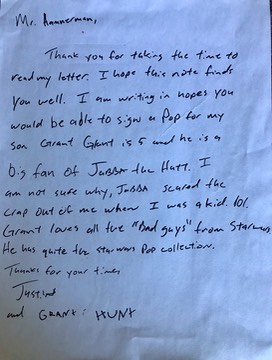 Mr. Ammerman,
Thank you for taking the time to
read my letter. I hope this note finds
you well. I am writing in hopes you
would be able to sign a Pop for my
son Grant Grant is 5 and he is a
big fan of Jabba the Hutt. I
am not sure why, Jabba scared the
crap out of me when I was a kid. lol.
Grant loves all the "Bad guys" from Starwars
He has quite the starwars Pop collection.
Thanks for your time,
Justin
and Grant HUNT